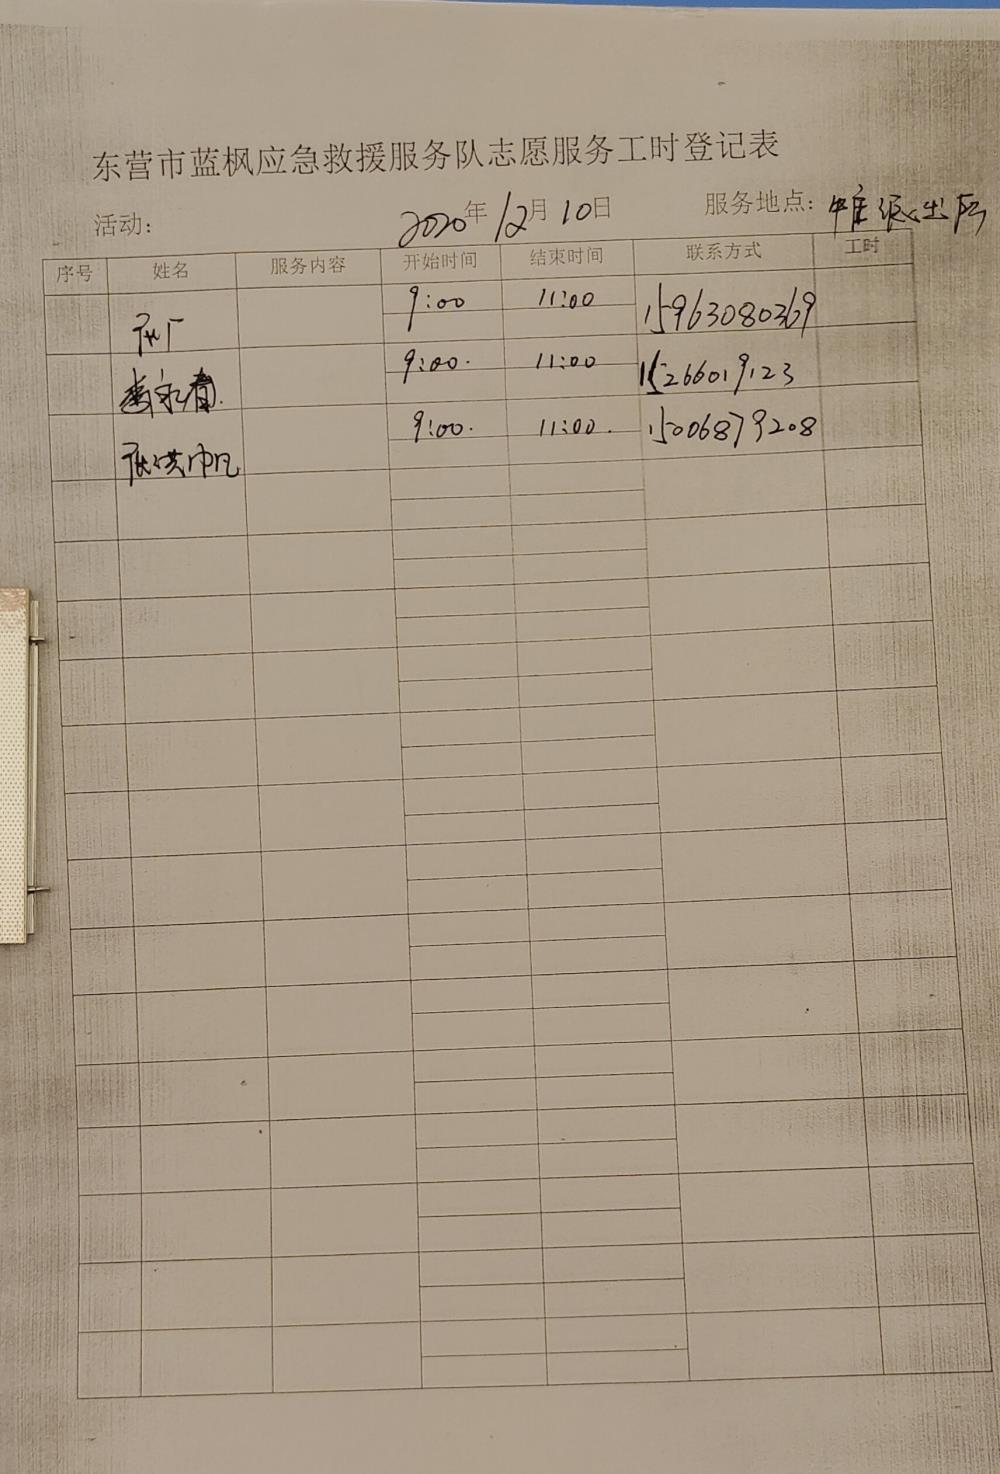 东营市蓝枫应急救援服务队志愿服务工时登记表
活动: 2020年12月10日 服务地点: 派出所
序号 姓名 服务内容 开始时间 结束时间 联系方式 工时
9:00 11:00 15963080369
李永春 9:00 11:00 15266019123
张洪帆 9:00 11:00 15006879208